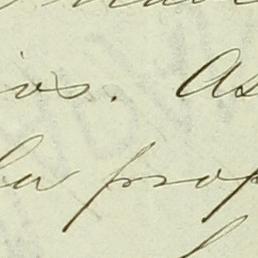 ios. As
la prop